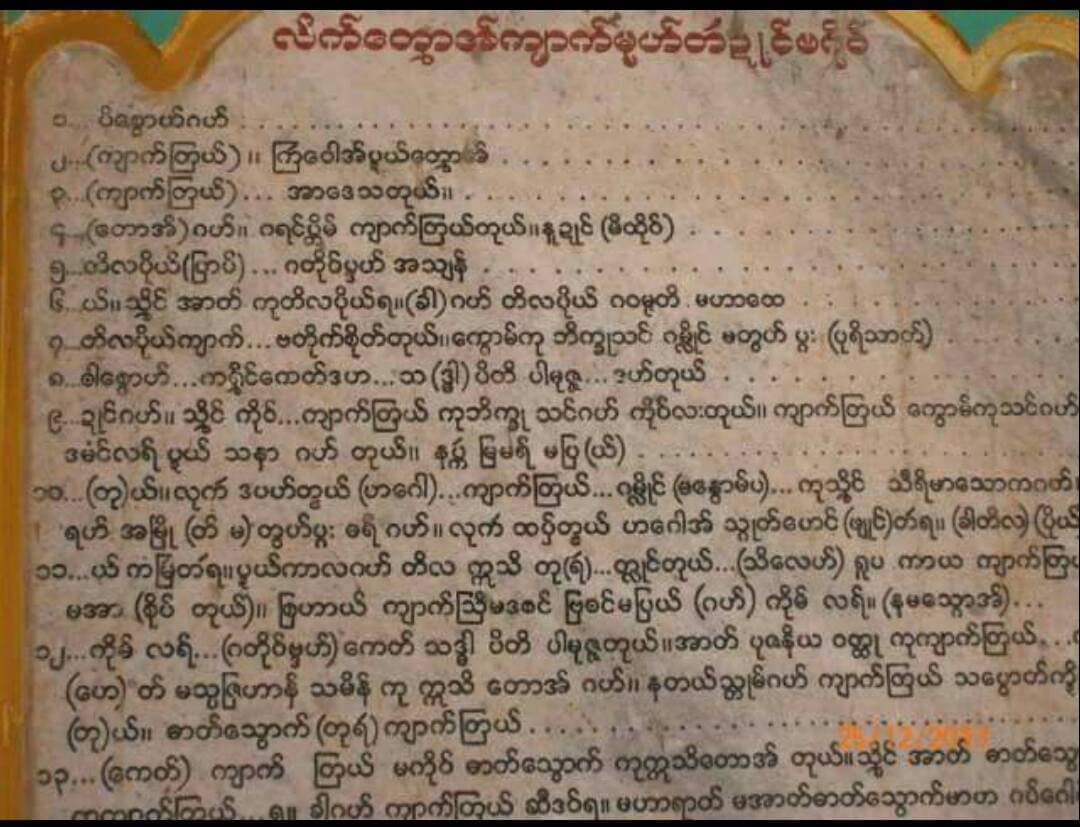 လိက်တ္ၚောအ်ကျာက်မုဟ်တံဍုင်စဂိုင်
၁... ပိစ္စောဟ်ဂဟ် . . . . . . . . . . . . . . . . . . . .
၂...(ကျာက်တြယ်) ။ ကြံဝေါအ်ပ္ဍယ်တ္ၚော အ် . . . . . . . . . . . . .
၃...(ကျာက်တြယ်)... အာဒေသတုယ်။ . . . . . . . . . . . . . .
၄...(တောအ်)ဂဟ်။ ဂရင်ပ္တိမ် ကျာက်တြယ်တုယ်။နူဍုင် (မိထိုဝ်) . . . . . . . .
၅...တိလပိုယ်(ပြာပ်)... ဂတိုဝ်မ္ဗဟ် အသျှန် . . . . . . . . . . . . .
၆...ယ်။သ္ဍိုင် အာတ် ကုတိလပိုယ်ရ။(ခါ)ဂဟ် တိလပိုယ် ဂဝမ္ပတိ မဟာထေ . . . . . . .
၇...တိလပိုယ်ကျာက်...ဗတိုက်စိုတ်တုယ်။ကွောမ်ကု ဘိက္ခုသင် ဂမ္လိုင် မတွဟ် ပ္ဍး (ပုရိသာတ်) . . . . .
၈...ခါစ္စောဟ်...ကရှိုင်ကေတ်ဒဟ...သ(ဒ္ဓါ)ပိတိ ပါမုဇ္ဇ...ဒဟ်တုယ် . . . . . . . . . .
၉...ဍုင်ဂဟ်။ သ္ဍိုင် ကိုဝ်...ကျာက်တြယ် ကုဘိက္ခု သင်ဂဟ် ကိုဝ်လးတုယ်။ ကျာက်တြယ် ကွောမ်ကုသင်ဂဟ်
ဒမံင်လရ် ပ္ဍယ် သနာ ဂဟ် တုယ်။ နပ္ဍဲ မြမရ် မပြ(ယ်) . . . . . . . . . .
၁၀...(တု)ယ်။လုကံ ဒပဟ်တ္ဍယ် (ဟဂေါ)...ကျာက်တြယ်...ဂမ္လိုင် (မန္ဇောမ်ပ)...ကုသ္ဍိုင် သိရိမာသောကဂတ်။
ရဟ် အမြို (တ် မ)တွဟ်ပ္ဍး ဓရ် ဂဟ်။လုကံ ထပှ်တ္ဍယ် ဟဂေါအ် သွုတ်ဟေင် (ဖျုင်)တံရ။(ခါတိလ)(ပိုယ်
၁၁...ယ် ကမြံတံရ။ပ္ဍယ်ကာလဂဟ် တိလ ဣသိ တု(ရံ)...တ္ညုင်တုယ်...(သိလေဟ်) ရူပ ကာယ ကျာက်တြယ်
မအာ (စိုပ် တုယ်)။ စြဟာယ် ကျာက်ဩိမဒစင် ဗြိစင်မပြယ် (ဂဟ်) ကိုမ် လရ်။(နမသ္ဂောအ်)...
၁၂...ကိုမ် လရ်...(ဂတိုဝ်မ္ဗဟ်)ကေတ် သဒ္ဓါ ပိတိ ပါမုဇ္ဇတုယ်။အာတ် ပုဇနိယ ဝတ္ထု ကုကျာက်တြယ်...
(ဟေ)တ် မသွဇြိဟာန် သမိန် ကု ဣသိ တောအ် ဂဟ်။ နတယ်သ္ဍုမ်ဂဟ် ကျာက်တြယ် သပ္ဍောတ်ကို
(တု)ယ်။ ဓာတ်သွောက်(တုရံ)ကျာက်တြယ် . . . . . . . . . . . . . . .
၁၃...(ကေတ်) ကျာက် တြယ် မကိုဝ် ဓာတ်သွောက် ကုဣသိတောအ် တုယ်။သ္ဍိုင် အာတ် ဓာတ်သွော
ကုကျာက်တြယ်...ရ။ ခါဂဟ် ကျာက်တြယ် ဆီဒဝ်ရ။မဟာရာတ် မအာတ်ဓာတ်သွောက်မာဟ ဂပ်ဂေါ